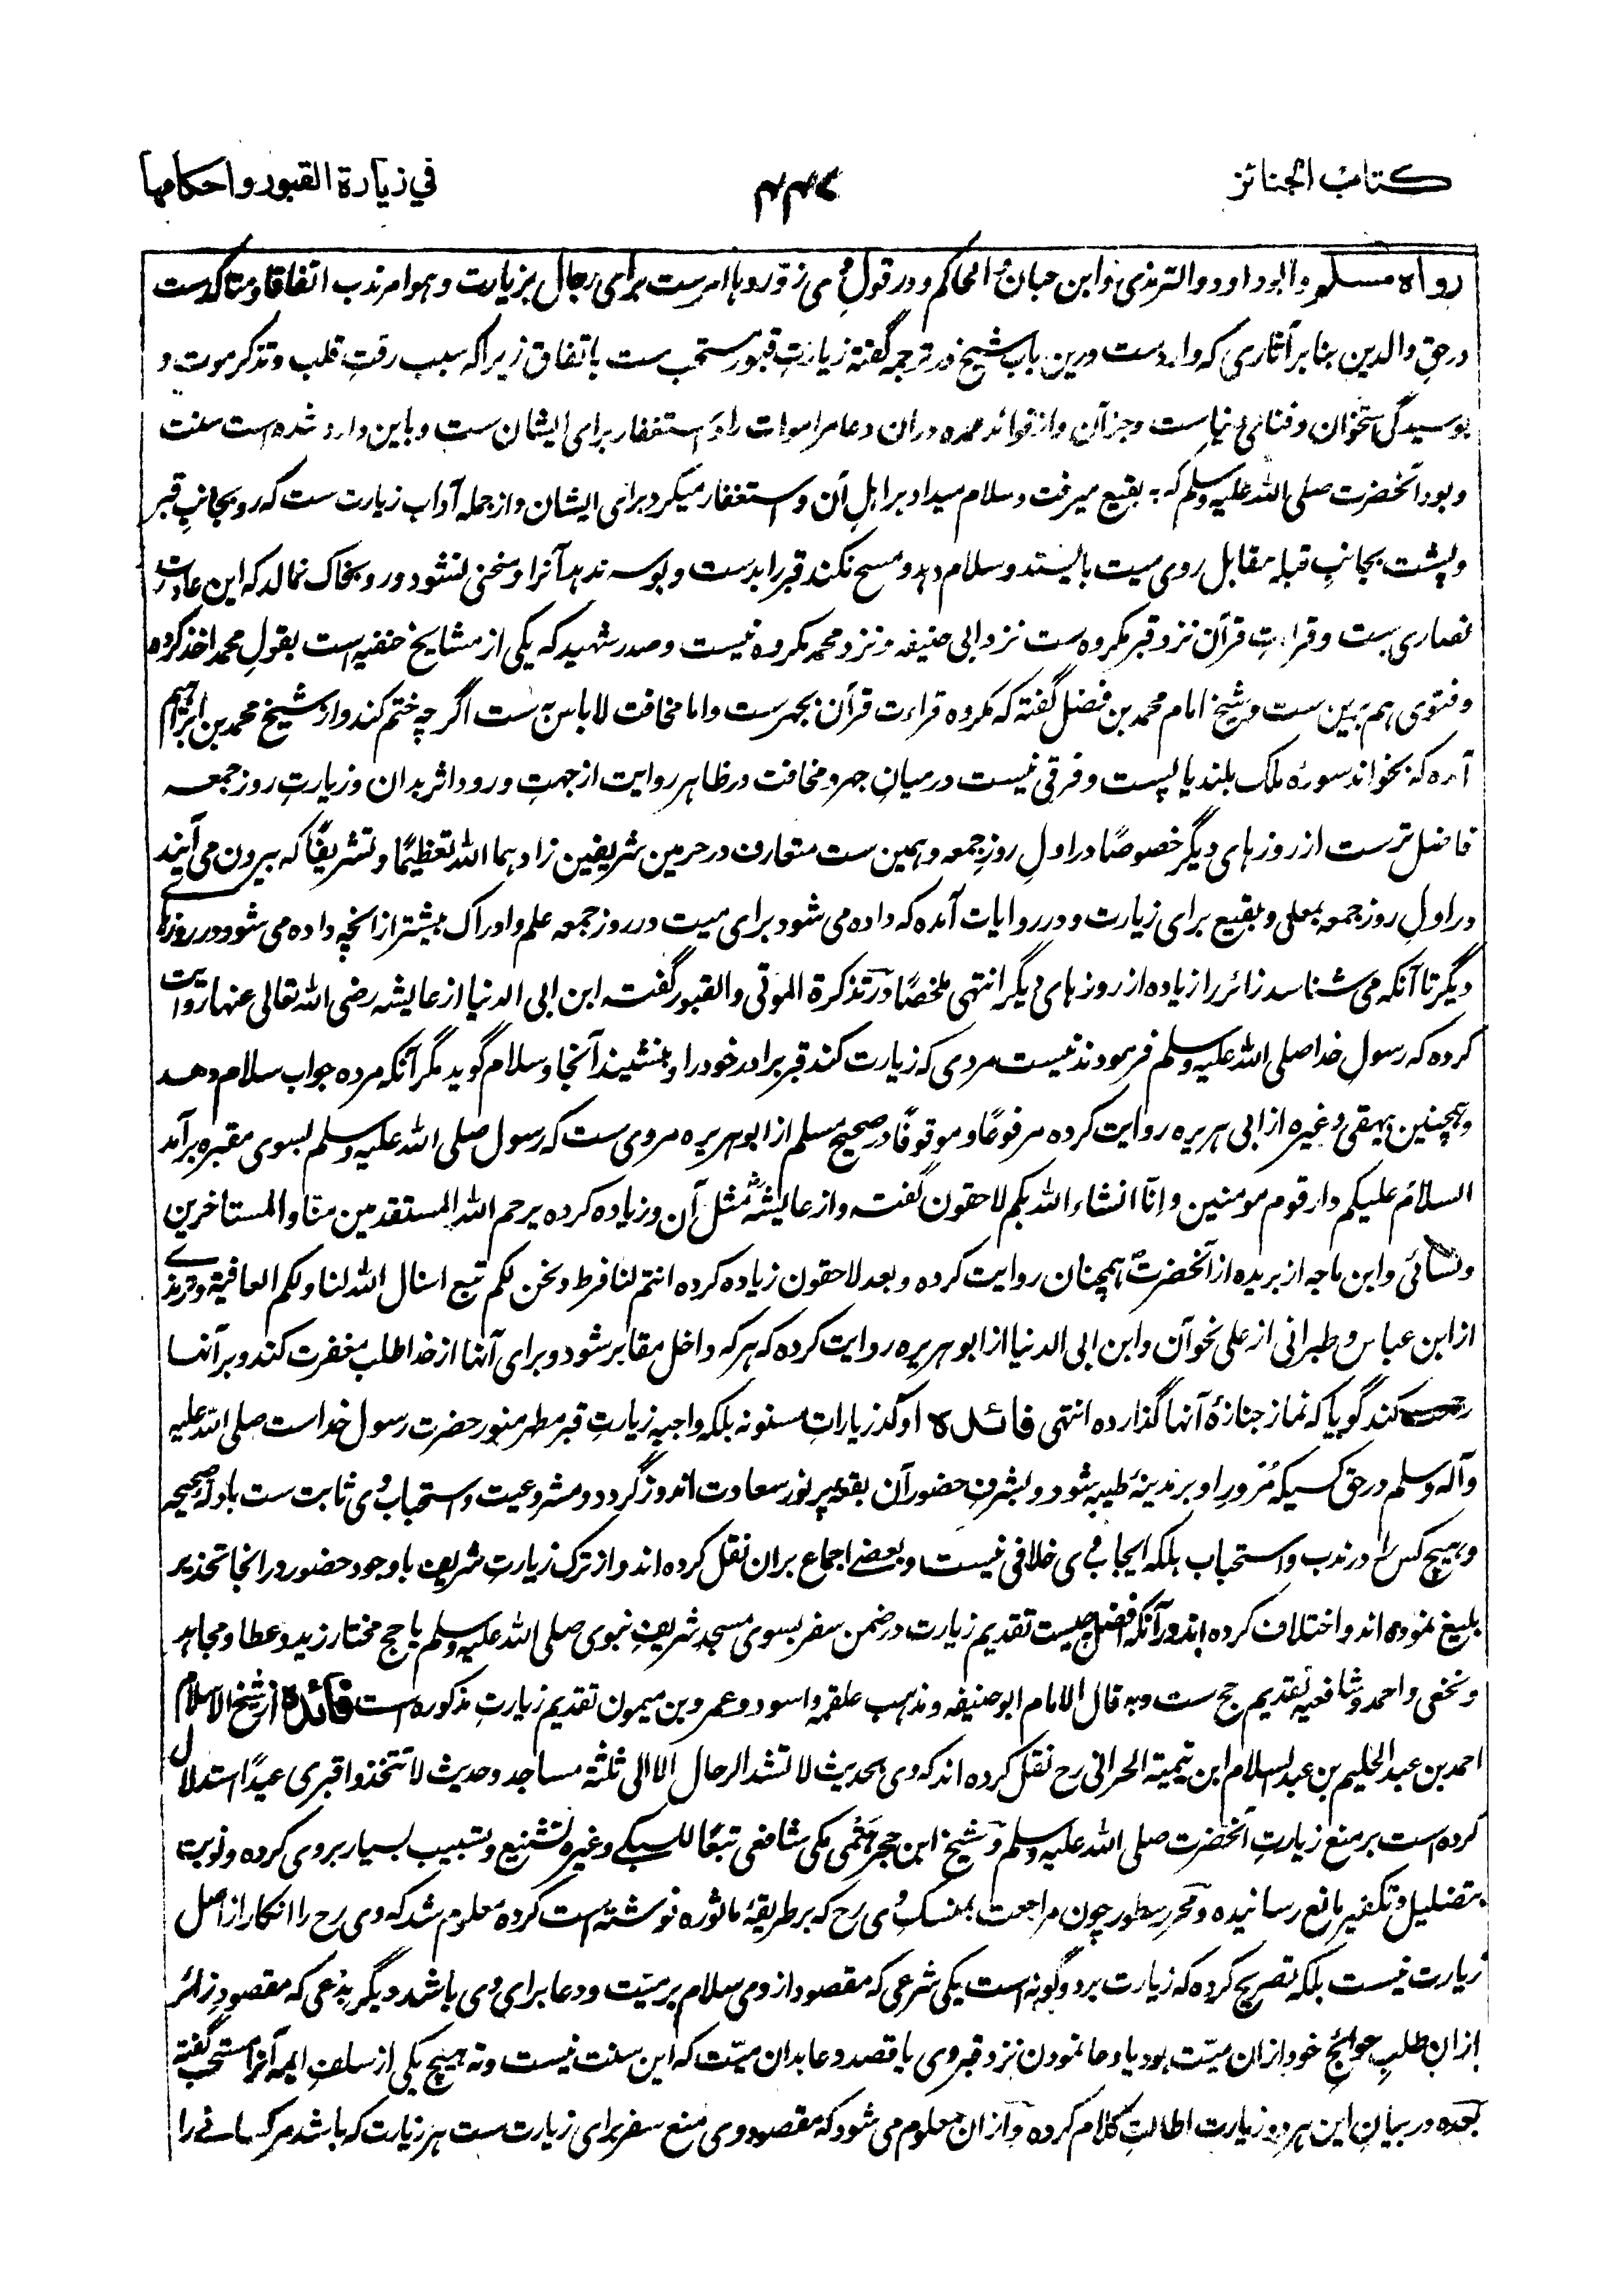 كتاب الجنائز
٤٣٤
في زيارة القبور واحكامها
رواه مسلم وابوداود والترمذي وابن حبان والحاكم ودر قول وی زوروها امرست برای رجال بزیارت وهو امر ندب اتفاقا ومتاکدست
درحق والدین بنابر آثاری که واردست درین باب شیخ در ترجمه گفته زیارت قبور مستحب ست باتفاق زیراکه سبب رقت قلب وتذکر موت و
بوسیدگی استخوان وفنائی دنیاست وجز آن واز فوائد عمده دران دعا مر اموات را و استغفار برای ایشان ست و باین وارد شده است سنت
وبود آنحضرت صلی الله علیه وسلم که به بقیع میرفت وسلام میداد بر اهل آن و استغفار میکرد برای ایشان و از جمله آداب زیارت ست که رو بجانب قبر
وپشت بجانب قبله مقابل روی میت بایستد وسلام دهد و مسح نکند قبر را بدست و بوسه ندهد آنرا و منحنی نشود و رو بخاک نمالد که این عادت
نصاری ست وقراءت قرآن نزد قبر مکروه ست نزد ابی حنیفه ونزد محمد مکروه نیست وصدر شهید که یکی از مشایخ حنفیه است بقول محمد اخذ کرده
وفتوی هم برین ست و شیخ امام محمد بن فضل گفته که مکروه قراءت قرآن بجهرست واما مخافت لاباس به ست اگرچه ختم کند و از شیخ محمد بن ابراهیم
آمده که بخواند سورۀ ملک بلند یا پست وفرقی نیست درمیان جهر و مخافت در ظاهر روایت از جهت ورود اثر بدان و زیارت روز جمعه
فاضل ترست از روزهای دیگر خصوصًا در اول روز جمعه وهمین ست متعارف در حرمین شریفین زادهما الله تعظیمًا وتشریفًا که بیرون می آیند
در اول روز جمعه بمعلی وبقیع برای زیارت و در روایات آمده که داده می شود برای میت در روز جمعه علم و ادراک بیشتر از انچه داده می شود در روزهای
دیگر تا آنکه می شناسد زائر را زیاده از روزهای دیگر انتهی ملخصًا در تذکرة الموتی والقبور گفته ابن ابی الدنیا از عایشه رضی الله تعالی عنها روایت
کرده که رسول خدا صلی الله علیه وسلم فرمودند نیست مردی که زیارت کند قبر برادر خود را و بنشیند آنجا و سلام گوید مگر آنکه مرده جواب سلام دهد
وهمچنین بیهقی وغیره از ابی هریره روایت کرده مرفوعًا و موقوفًا در صحیح مسلم از ابو هریره مروی ست که رسول صلی الله علیه وسلم بسوی مقبره برآمد
السلام علیکم دار قوم مومنین وانّا انشاء الله بکم لاحقون گفت و از عایشه مثل آن و زیاده کرده یرحم الله المستقدمین منّا والمستاخرین
ونسائی وابن ماجه از بریده از آنحضرت همچنان روایت کرده و بعد لاحقون زیاده کرده انتم لنا فرط ونحن لکم تبع اسال الله لنا ولکم العافیة وترمذی
از ابن عباس وطبرانی از علی نحو آن وابن ابی الدنیا از ابو هریره روایت کرده که هرکه داخل مقابر شود و برای آنها از خدا طلب مغفرت کند و بر آنها
رحمت کند گویا که نماز جنازۀ آنها گذارده انتهی فائده اوکد زیارات مسنونه بلکه واجبه زیارت قبر مطهر منور حضرت رسول خداست صلی الله علیه
وآله وسلم درحق کسیکه مزور او بر مدینۀ طیبه شود و بشرف حضور آن بقعۀ پر نور سعادت اندوز گردد و مشروعیت و استحباب وی ثابت ست بادلۀ صحیحه
وهیچ کس را در ندب و استحباب بلکه ایجاب وی خلافی نیست وبعضے اجماع بران نقل کرده اند و از ترک زیارت شریف باوجود حضور در انجا تحذیر
بلیغ نموده اند و اختلاف کرده اند در آنکه افضل چیست تقدیم زیارت در ضمن سفر بسوی مسجد شریف نبوی صلی الله علیه وسلم یا حج مختار زید وعطا ومجاهد
ونخعی واحمد وشافعیه تقدیم حج ست وبه قال الامام ابوحنیفه ومذهب علقمه واسود وعمرو بن میمون تقدیم زیارت مذکوره است فائده از شیخ الاسلام
احمد بن عبد الحلیم بن عبد السلام ابن تیمیة الحرانی رح نقل کرده اند که وی بحدیث لا تشد الرحال الا الی ثلثة مساجد وحدیث لا تتخذوا قبری عیدًا استدلال
کرده است بر منع زیارت آنحضرت صلی الله علیه وسلم و شیخ ابن حجر هیثمی مکی شافعی تبعًا للسبکے وغیره تشنیع وتسبیب بسیار بر وی کرده و نوبت
بتضلیل وتکفیر مانع رسانیده و محرر سطور چون مراجعت بمنسک وی رح که بر طریقۀ ماثوره نوشته است کرده معلوم شد که وی رح را انکار از اصل
زیارت نیست بلکه تصریح کرده که زیارت بر دوگونه است یکی شرعی که مقصود از وی سلام بر میّت و دعا برای وی باشد دیگر بدعی که مقصود زائر
ازان طلب حوائج خود ازان میّت بود یا دعا نمودن نزد قبر وی یا قصد دعا بدان میّت که این سنت نیست ونه هیچ یکی از سلف ایمه آنرا مستحب گفته
بعده در بیان این هردو زیارت اطالت کلام کرده و ازان معلوم می شود که مقصود وی منع سفر برای زیارت ست هر زیارت که باشد مر کسانے را